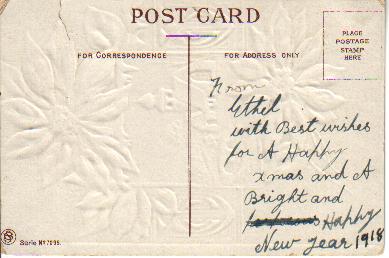 POST CARD
FOR CORRESPONDENCE
FOR ADDRESS ONLY
PLACE
POSTAGE
STAMP
HERE
From
Ethel
with Best wishes
for A Happy
xmas and A
Bright and
Happy
New year 1918
Serie No 7095.